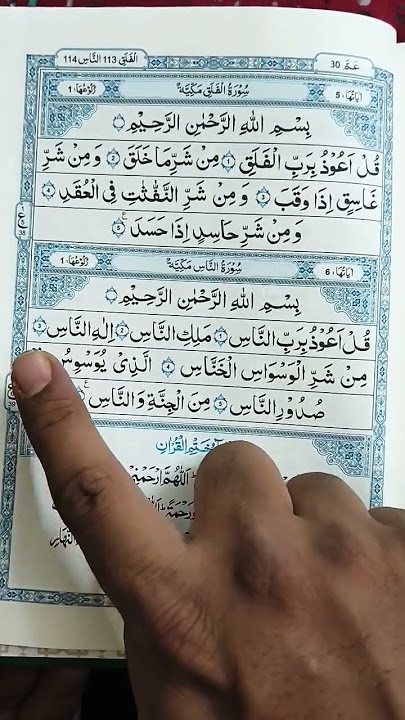 الفلق 113 الناس 114
عم 30
اٰیَاتُهَا 5 سُوْرَةُ الْفَلَقِ مَكِّیَّةٌ رُكُوْعُهَا 1
بِسْمِ اللّٰهِ الرَّحْمٰنِ الرَّحِیْمِ
قُلْ اَعُوْذُ بِرَبِّ الْفَلَقِ ۝1 مِنْ شَرِّ مَا خَلَقَ ۝2 وَ مِنْ شَرِّ
غَاسِقٍ اِذَا وَقَبَ ۝3 وَ مِنْ شَرِّ النَّفّٰثٰتِ فِی الْعُقَدِ ۝4
وَ مِنْ شَرِّ حَاسِدٍ اِذَا حَسَدَ ۝5
اٰیَاتُهَا 6 سُوْرَةُ النَّاسِ مَكِّیَّةٌ رُكُوْعُهَا 1
بِسْمِ اللّٰهِ الرَّحْمٰنِ الرَّحِیْمِ
قُلْ اَعُوْذُ بِرَبِّ النَّاسِ ۝1 مَلِكِ النَّاسِ ۝2 اِلٰهِ النَّاسِ ۝3
مِنْ شَرِّ الْوَسْوَاسِ الْخَنَّاسِ ۝4 الَّذِیْ یُوَسْوِسُ
صُدُوْرِ النَّاسِ ۝5 مِنَ الْجِنَّةِ وَ النَّاسِ
خَتْمِ الْقُرْاٰنِ
اَللّٰهُمَّ ارْحَمْنِیْ
رَحْمَةً
النَّهَارِ